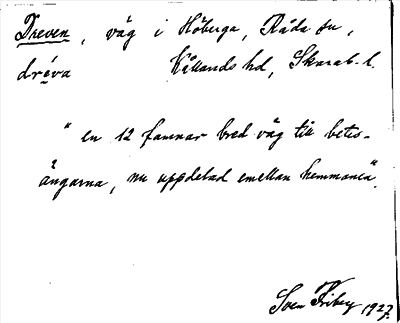 Dreven, väg i Höberga, Råda sn,
dréva Kållands hd, Skarab. l.
"en 12 famnar bred väg till betes-
ängarna, nu uppdelad emellan hemmanen".
Sven Friby 1927.